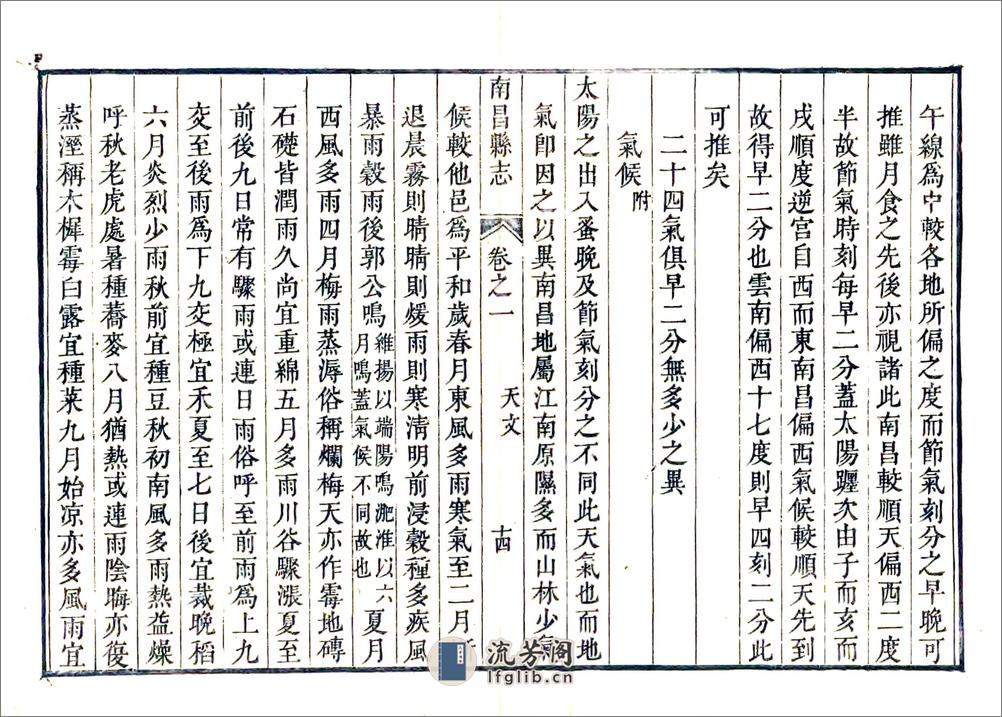 午線爲中較各地所偏之度而節氣刻分之早晚可
推雖月食之先後亦視諸此南昌較順天偏西二度
半故節氣時刻每早二分蓋太陽躔次由子而亥而
戌順度逆宮自西而東南昌偏西氣候較順天先到
故得早二分也雲南偏西十七度則早四刻二分此
可推矣
二十四氣俱早二分無多少之異
氣候附
太陽之出入蚤晚及節氣刻分之不同此天氣也而地
氣卽因之以異南昌地屬江南原隰多而山林少氣
南昌縣志 卷之一 天文 十四
候較他邑爲平和歲春月東風多雨寒氣至二月
退晨霧則晴晴則煖雨則寒淸明前浸穀種多疾風
暴雨穀雨後郭公鳴維揚以端陽鳴淝淮以六月鳴蓋氣候不同故也夏月
西風多雨四月梅雨蒸溽俗稱爛梅天亦作霉地磚
石礎皆潤雨久尚宜重綿五月多雨川谷驟漲夏至
前後九日常有驟雨或連日雨俗呼至前雨爲上九
交至後雨爲下九交極宜禾夏至七日後宜栽晚稻
六月炎烈少雨秋前宜種豆秋初南風多雨熱益燥
呼秋老虎處暑種蕎麥八月猶熱或連雨陰晦亦復
蒸溼稱木樨霉白露宜種菜九月始凉亦多風雨宜
流芳阁
lfglib.cn